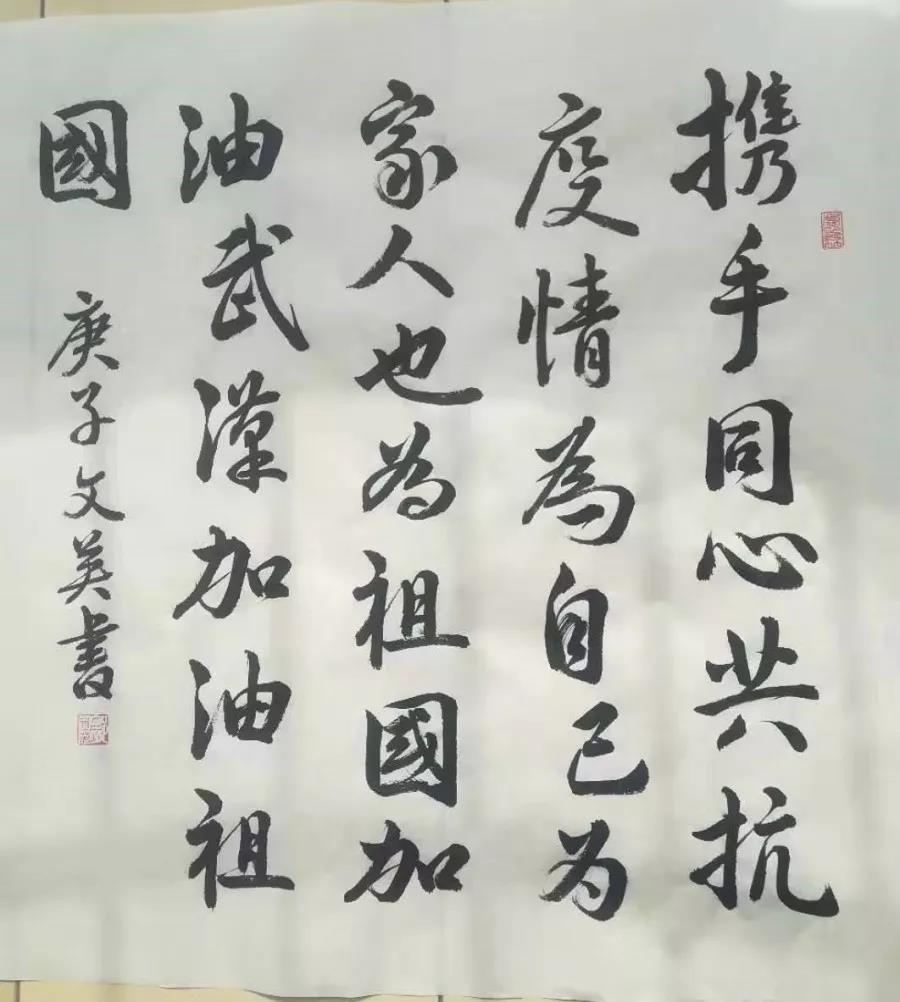 携手同心共抗
疫情為自己为
家人也为祖國加
油武漢加油祖
國
庚子文英書